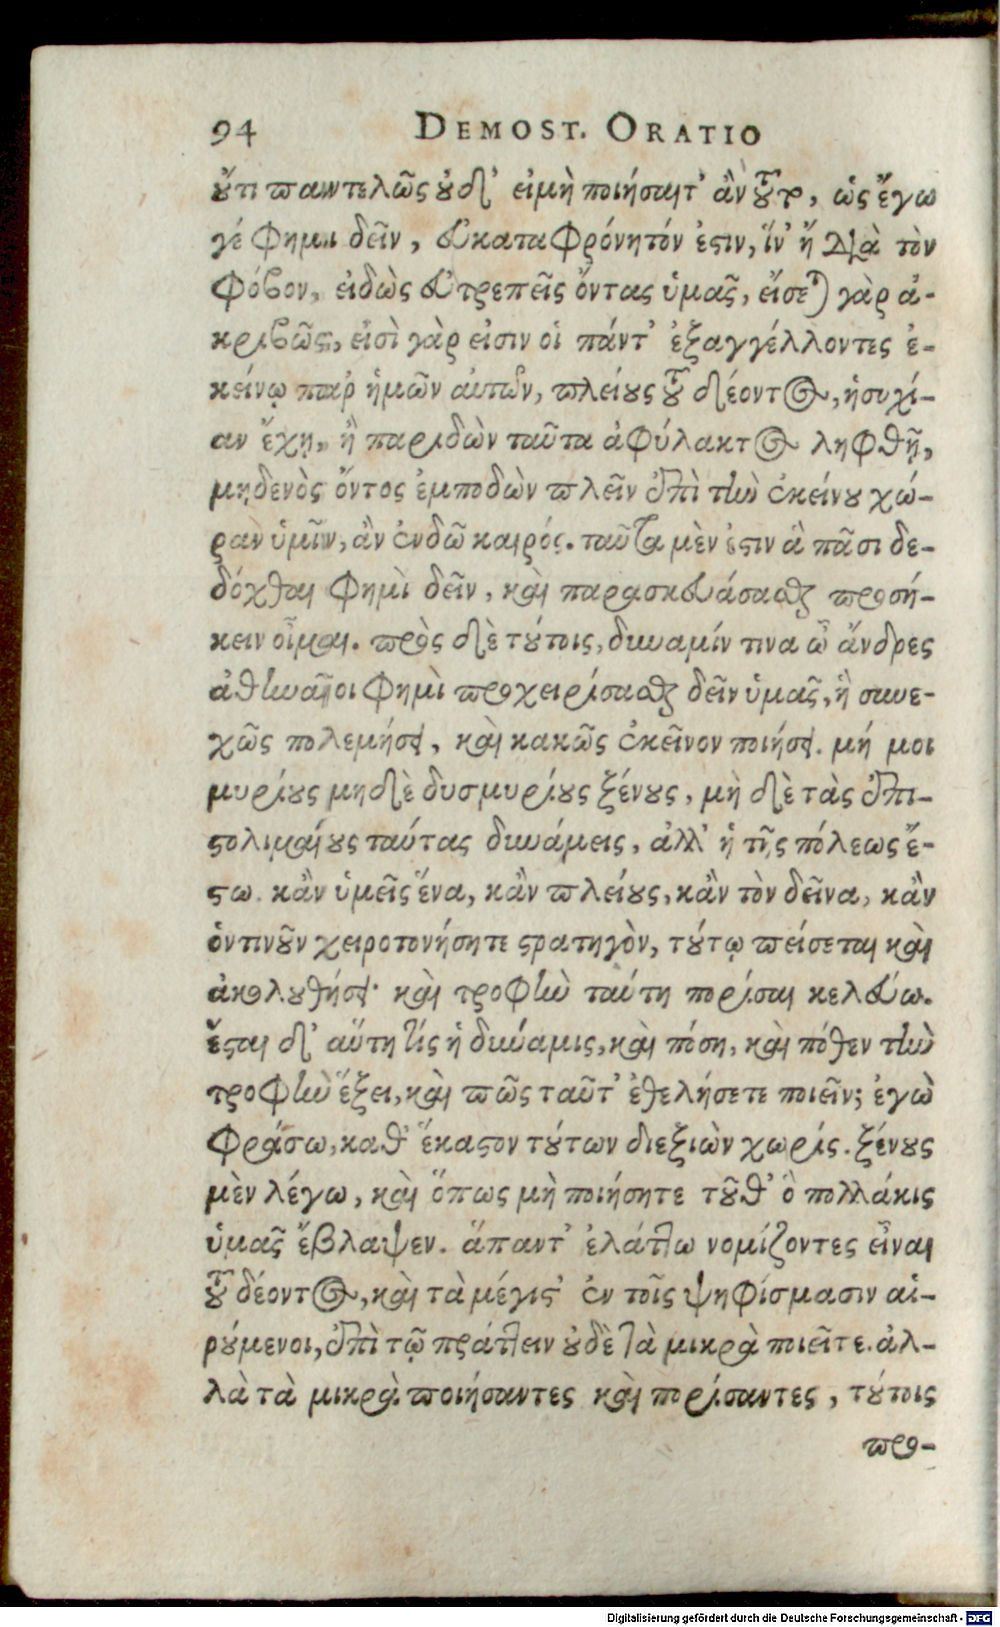 94 DEMOST. ORATIO
ὔτι παντελῶς ὐδ' εἰ μὴ ποιήσαιτ' ἂν τοῦτο, ὡς ἔγωγε
γέ φημι δεῖν, εὐκαταφρόνητόν ἐστιν, ἵν' ἢ διὰ τὸν
φόβον, εἰδὼς εὐτρεπεῖς ὄντας ὑμᾶς, εἴσεται γὰρ ἀ-
κριβῶς, εἰσὶ γὰρ εἰσιν οἱ πάντ' ἐξαγγέλλοντες ἐ-
κείνῳ παρ' ἡμῶν αὐτῶν, πλείους τοῦ δέοντος, ἡσυχί-
αν ἔχῃ, ἢ παριδὼν ταῦτα ἀφύλακτος ληφθῇ,
μηδενὸς ὄντος ἐμποδὼν πλεῖν ἐπὶ τὴν ἐκείνου χώ-
ραν ὑμῖν, ἂν ἐνδῶ καιρός. ταῦτα μὲν ἐστιν ἃ πᾶσι δε-
δόχθαι φημὶ δεῖν, καὶ παρασκευάσασθαι προσή-
κειν οἶμαι. πρὸς δὲ τούτοις, δυναμίν τινα ὦ ἄνδρες
ἀθηναῖοι φημὶ προχειρίσασθαι δεῖν ὑμᾶς, ἣ συνε-
χῶς πολεμήσει, καὶ κακῶς ἐκεῖνον ποιήσει. μή μοι
μυρίους μηδὲ δυσμυρίους ξένους, μὴ δὲ τὰς ἐπι-
στολιμαίους ταύτας δυνάμεις, ἀλλ' ἣ τῆς πόλεως ἔ-
στω. κἂν ὑμεῖς ἕνα, κἂν πλείους, κἂν τὸν δεῖνα, κἂν
ὁντινοῦν χειροτονήσητε στρατηγὸν, τούτῳ πείσεται καὶ
ἀκολουθήσει· καὶ τροφὴν ταύτη πορίσαι κελεύω.
ἔσται δ' αὕτη τίς ἡ δύναμις, καὶ πόση, καὶ πόθεν τὴν
τροφὴν ἕξει, καὶ πῶς ταῦτ' ἐθελήσετε ποιεῖν; ἐγὼ
φράσω, καθ' ἕκαστον τούτων διεξιὼν χωρίς. ξένους
μὲν λέγω, καὶ ὅπως μὴ ποιήσητε τοῦθ' ὃ πολλάκις
ὑμᾶς ἔβλαψεν. ἅπαντ' ἐλάττω νομίζοντες εἶναι
τοῦ δέοντος, καὶ τὰ μέγιστ' ἐν τοῖς ψηφίσμασιν αἱ-
ρούμενοι, ἐπὶ τῷ πράττειν οὐδὲ τὰ μικρὰ ποιεῖτε. ἀλ-
λὰ τὰ μικρὰ ποιήσαντες καὶ πορίσαντες, τούτοις
προ-
Digitalisierung gefördert durch die Deutsche Forschungsgemeinschaft - DFG